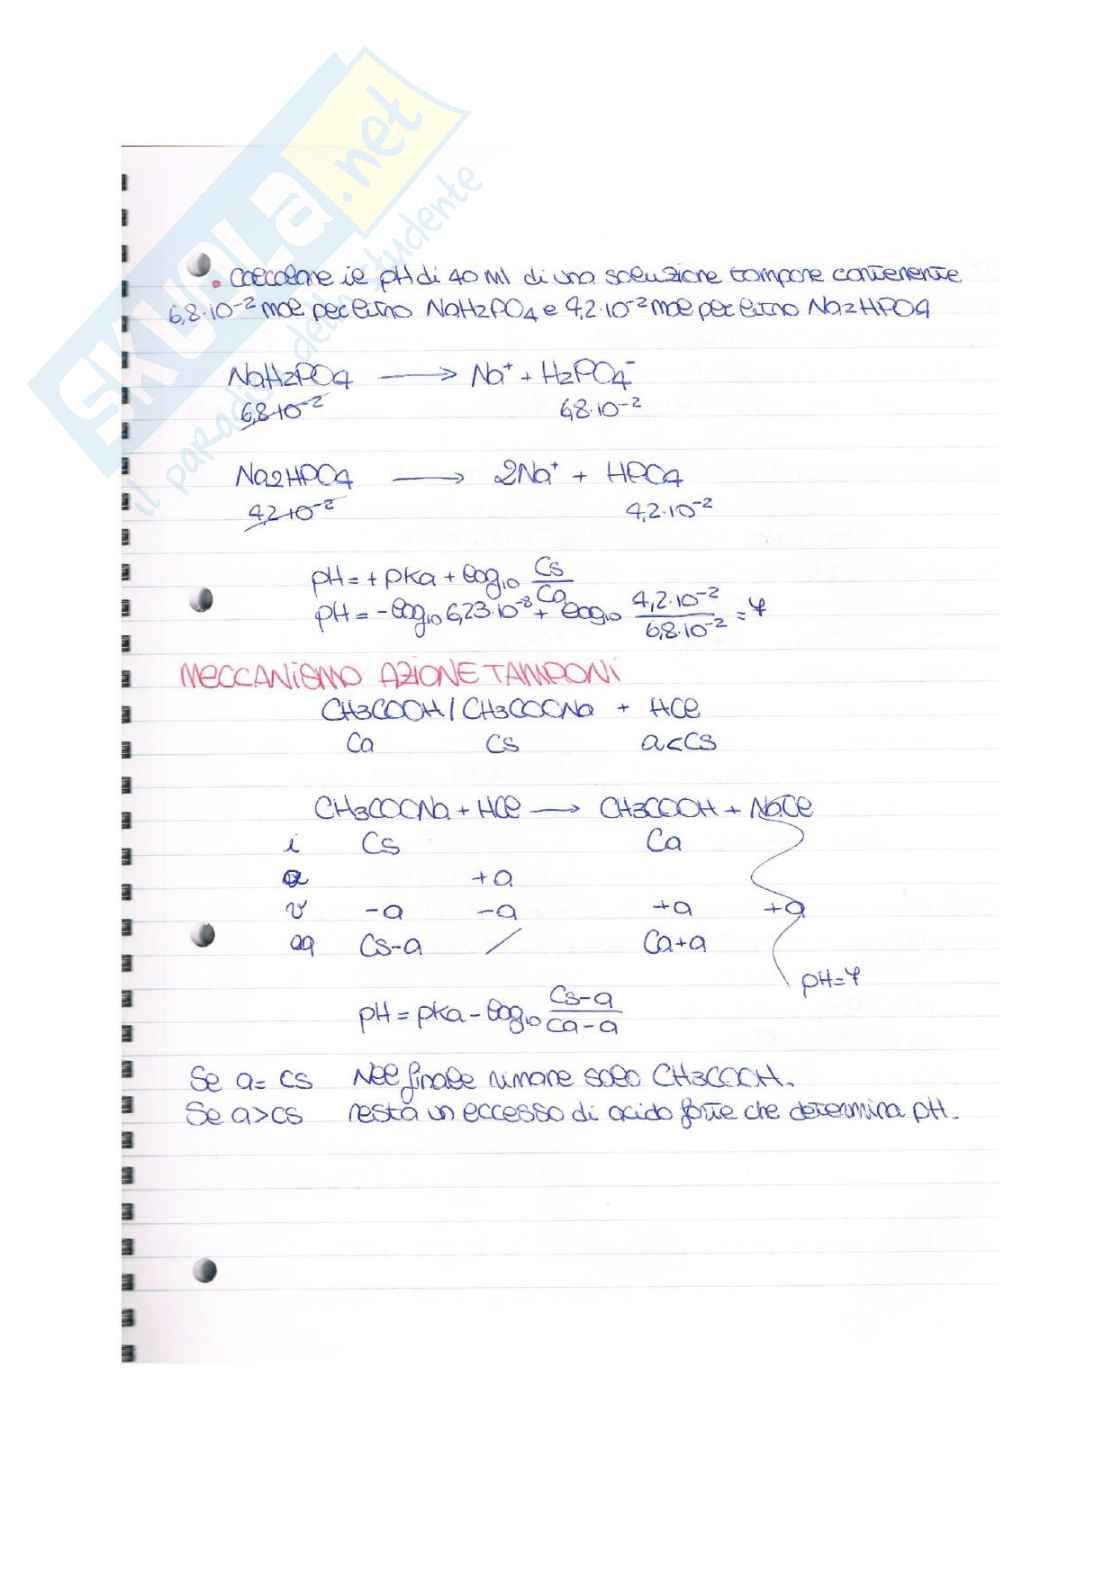 SKUOLA.net
il paradiso dello studente
• Calcolare il pH di 40 ml di una soluzione tampone contenente
6,8·10⁻² mol per litro NaH2PO4 e 4,2·10⁻² mol per litro Na2HPO4
NaH2PO4 ⟶ Na⁺ + H2PO4⁻
6,8·10⁻² 6,8·10⁻²
Na2HPO4 ⟶ 2Na⁺ + HPO4
4,2·10⁻² 4,2·10⁻²
pH = + pKa + log10 Cs/Ca
pH = - log10 6,23·10⁻⁸ + log10 4,2·10⁻²/6,8·10⁻² = 7
MECCANISMO AZIONE TAMPONI
CH3COOH / CH3COONa + HCl
Ca Cs a<Cs
CH3COONa + HCl ⟶ CH3COOH + NaCl
i Cs Ca
a +a
v -a -a +a +a
aq Cs-a / Ca+a
pH=7
pH = pKa - log10 Cs-a/Ca-a
Se a= Cs Nel finale rimane solo CH3COOH.
Se a>Cs resta un eccesso di acido forte che determina pH.